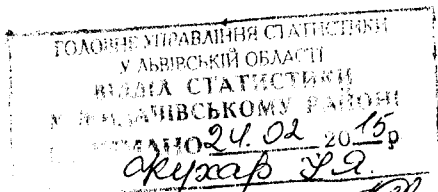 ГОЛОВНЕ УПРАВЛІННЯ СТАТИСТИКИ
У ЛЬВІВСЬКІЙ ОБЛАСТІ
ВІДДІЛ СТАТИСТИКИ
У ЖИДАЧІВСЬКОМУ РАЙОНІ
24.02 2015р